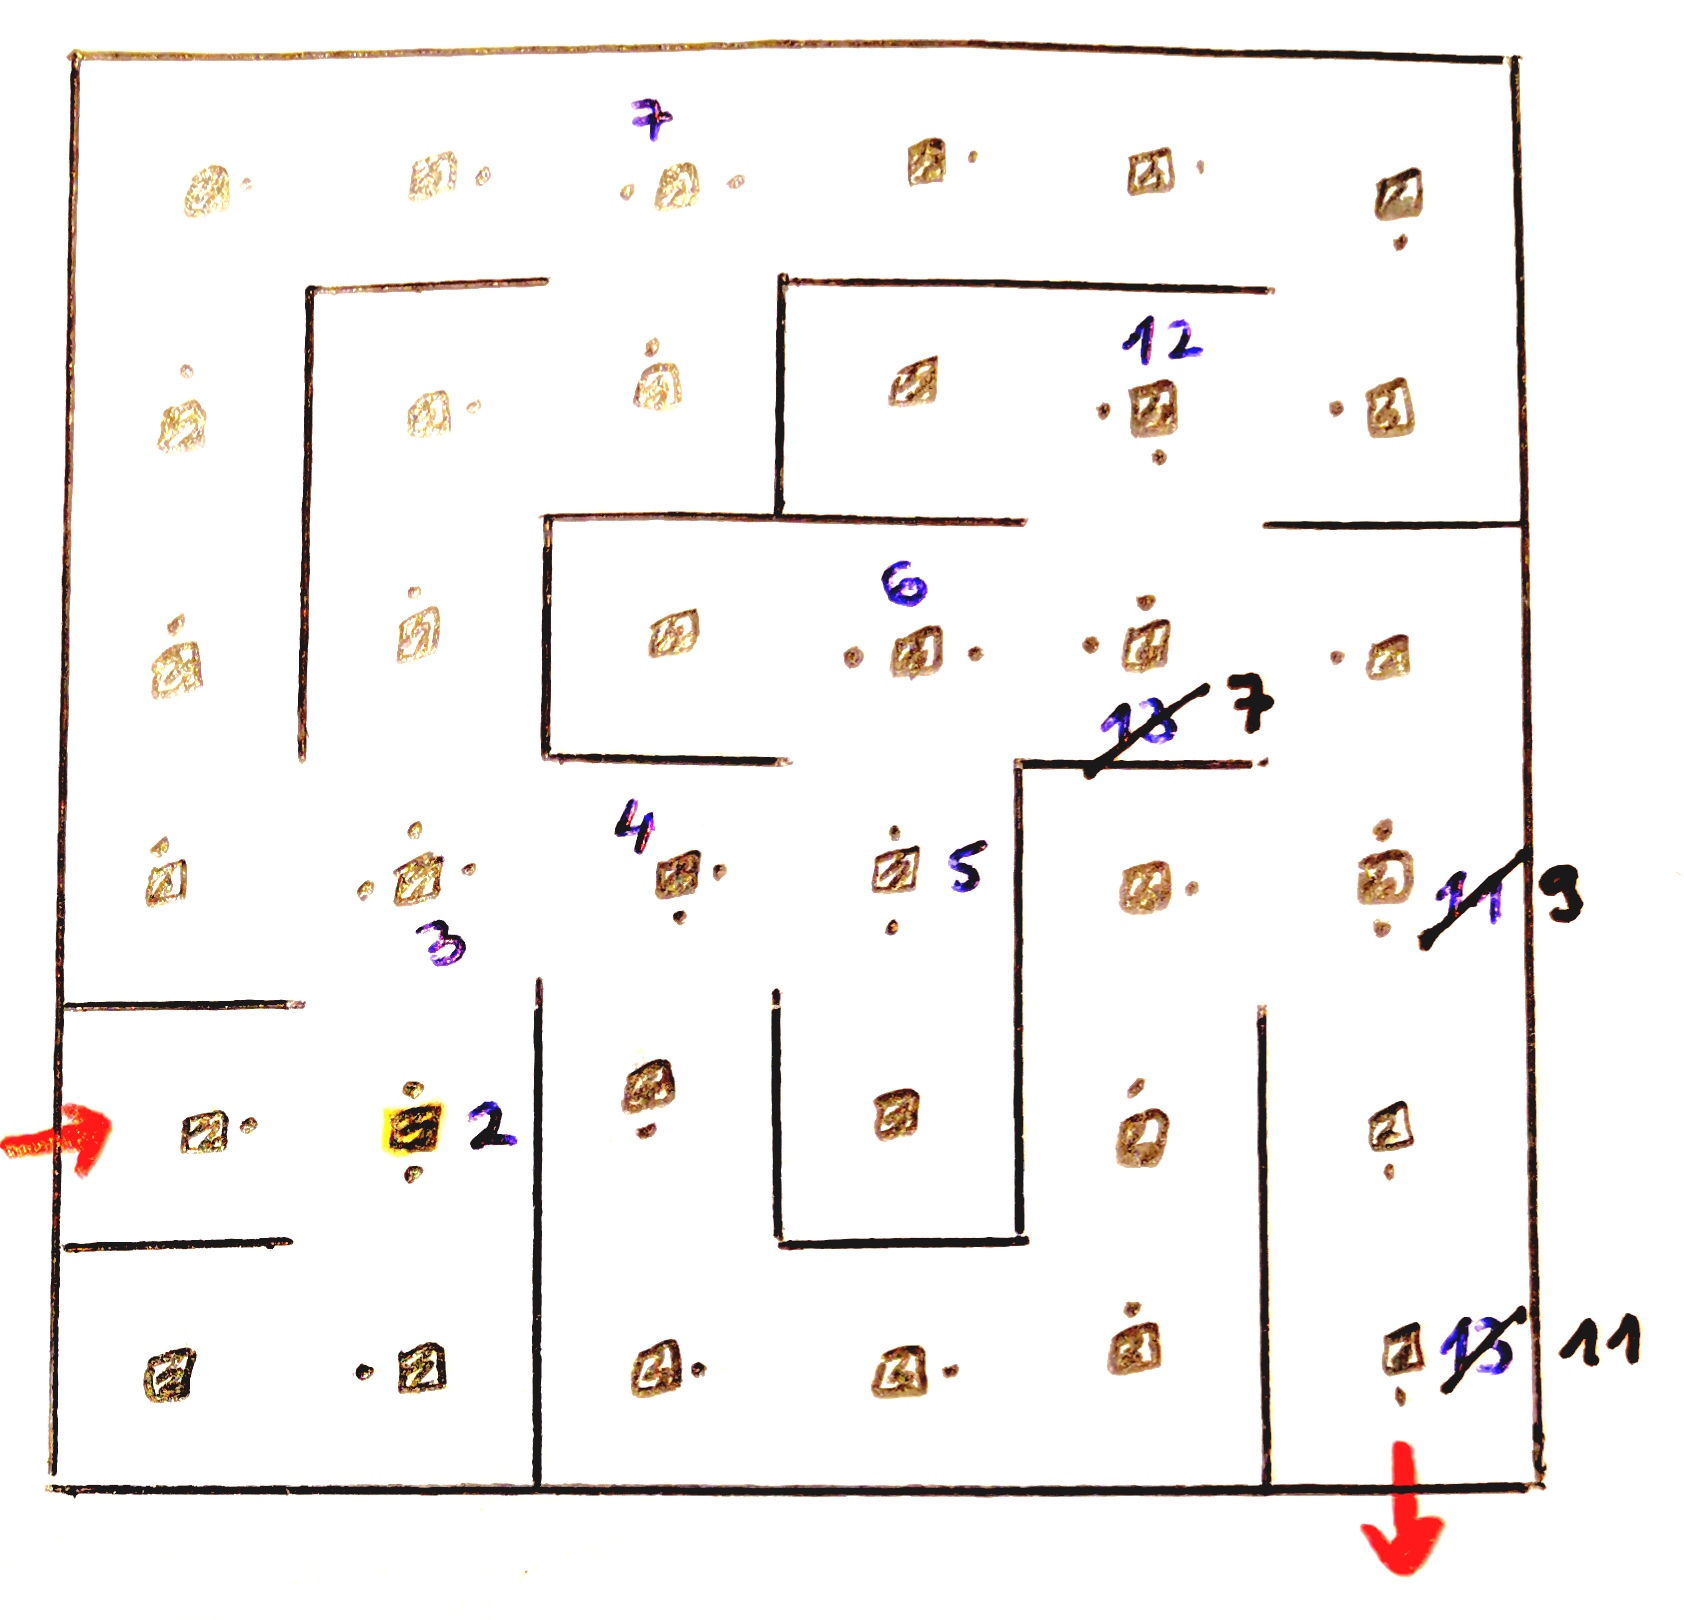 7
12
6
13 7
4
5
11 9
3
2
13 11